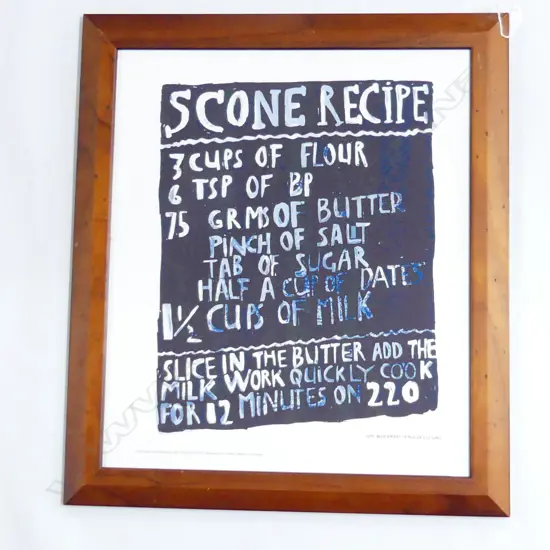 SCONE RECIPE
3 CUPS OF FLOUR
6 TSP OF BP
75 GRMS OF BUTTER
PINCH OF SALT
TAB OF SUGAR
HALF A CUP OF DATES
1½ CUPS OF MILK
SLICE IN THE BUTTER ADD THE
MILK WORK QUICKLY COOK
FOR 12 MINUTES ON 220